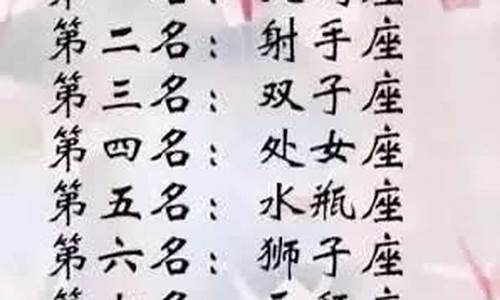 第二名：射手座
第三名：双子座
第四名：处女座
第五名：水瓶座
第六名：狮子座